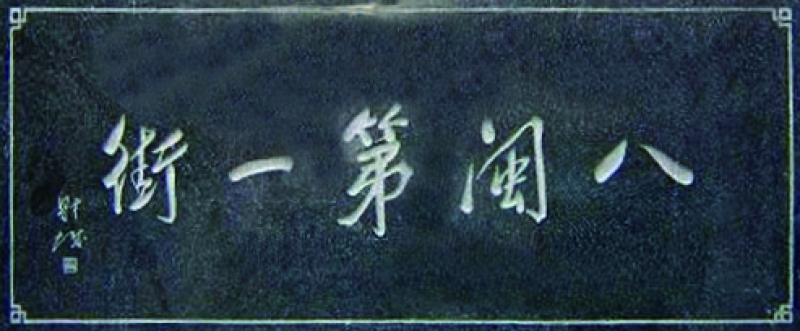 八闽第一街